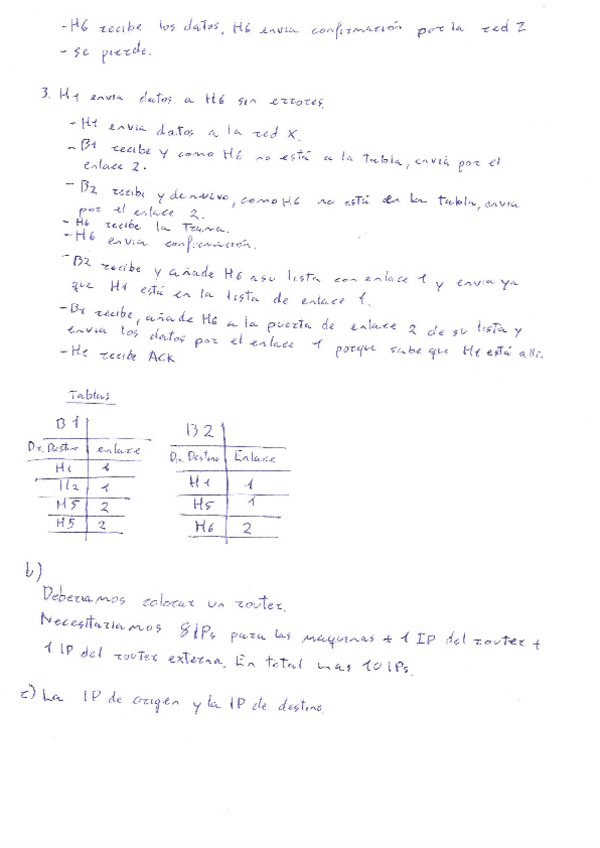 - H6 recibe los datos. H6 envia confirmación por la red Z
- se pierde.
3. H1 envia datos a H6 sin errores.
- H1 envia datos a la red X.
- B1 recibe y como H6 no está a la tabla, envia por el
enlace 2.
- B2 recibe y de nuevo, como H6 no está en la tabla, envia
por el enlace 2.
- H6 recibe la Trama.
- H6 envia confirmación.
- B2 recibe y añade H6 a su lista con enlace 1 y envia ya
que H1 está en la lista de enlace 1.
- B1 recibe, añade H6 a la puerta de enlace 2 de su lista y
envia los datos por el enlace 1 porque sabe que H1 está alli.
- H1 recibe ACK
Tablas
B1
Dir. Destino enlace
H1 1
H2 1
H5 2
H5 2
B2
Dir. Destino Enlace
H1 1
H5 1
H6 2
b)
Deberiamos colocar un router.
Necesitariamos 8 IPs para las maquinas + 1 IP del router +
1 IP del router externa. En total unas 10 IPs.
c) La IP de origen y la IP de destino.